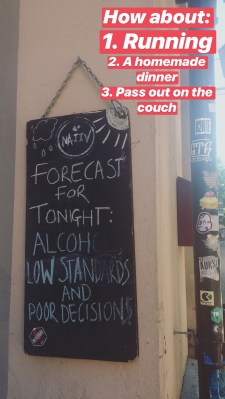 How about:
1. Running
2. A homemade
dinner
3. Pass out on the
couch
NATIV
FORECAST
FOR
TONIGHT:
ALCOHOL
LOW STANDARDS
AND
POOR DECISIONS